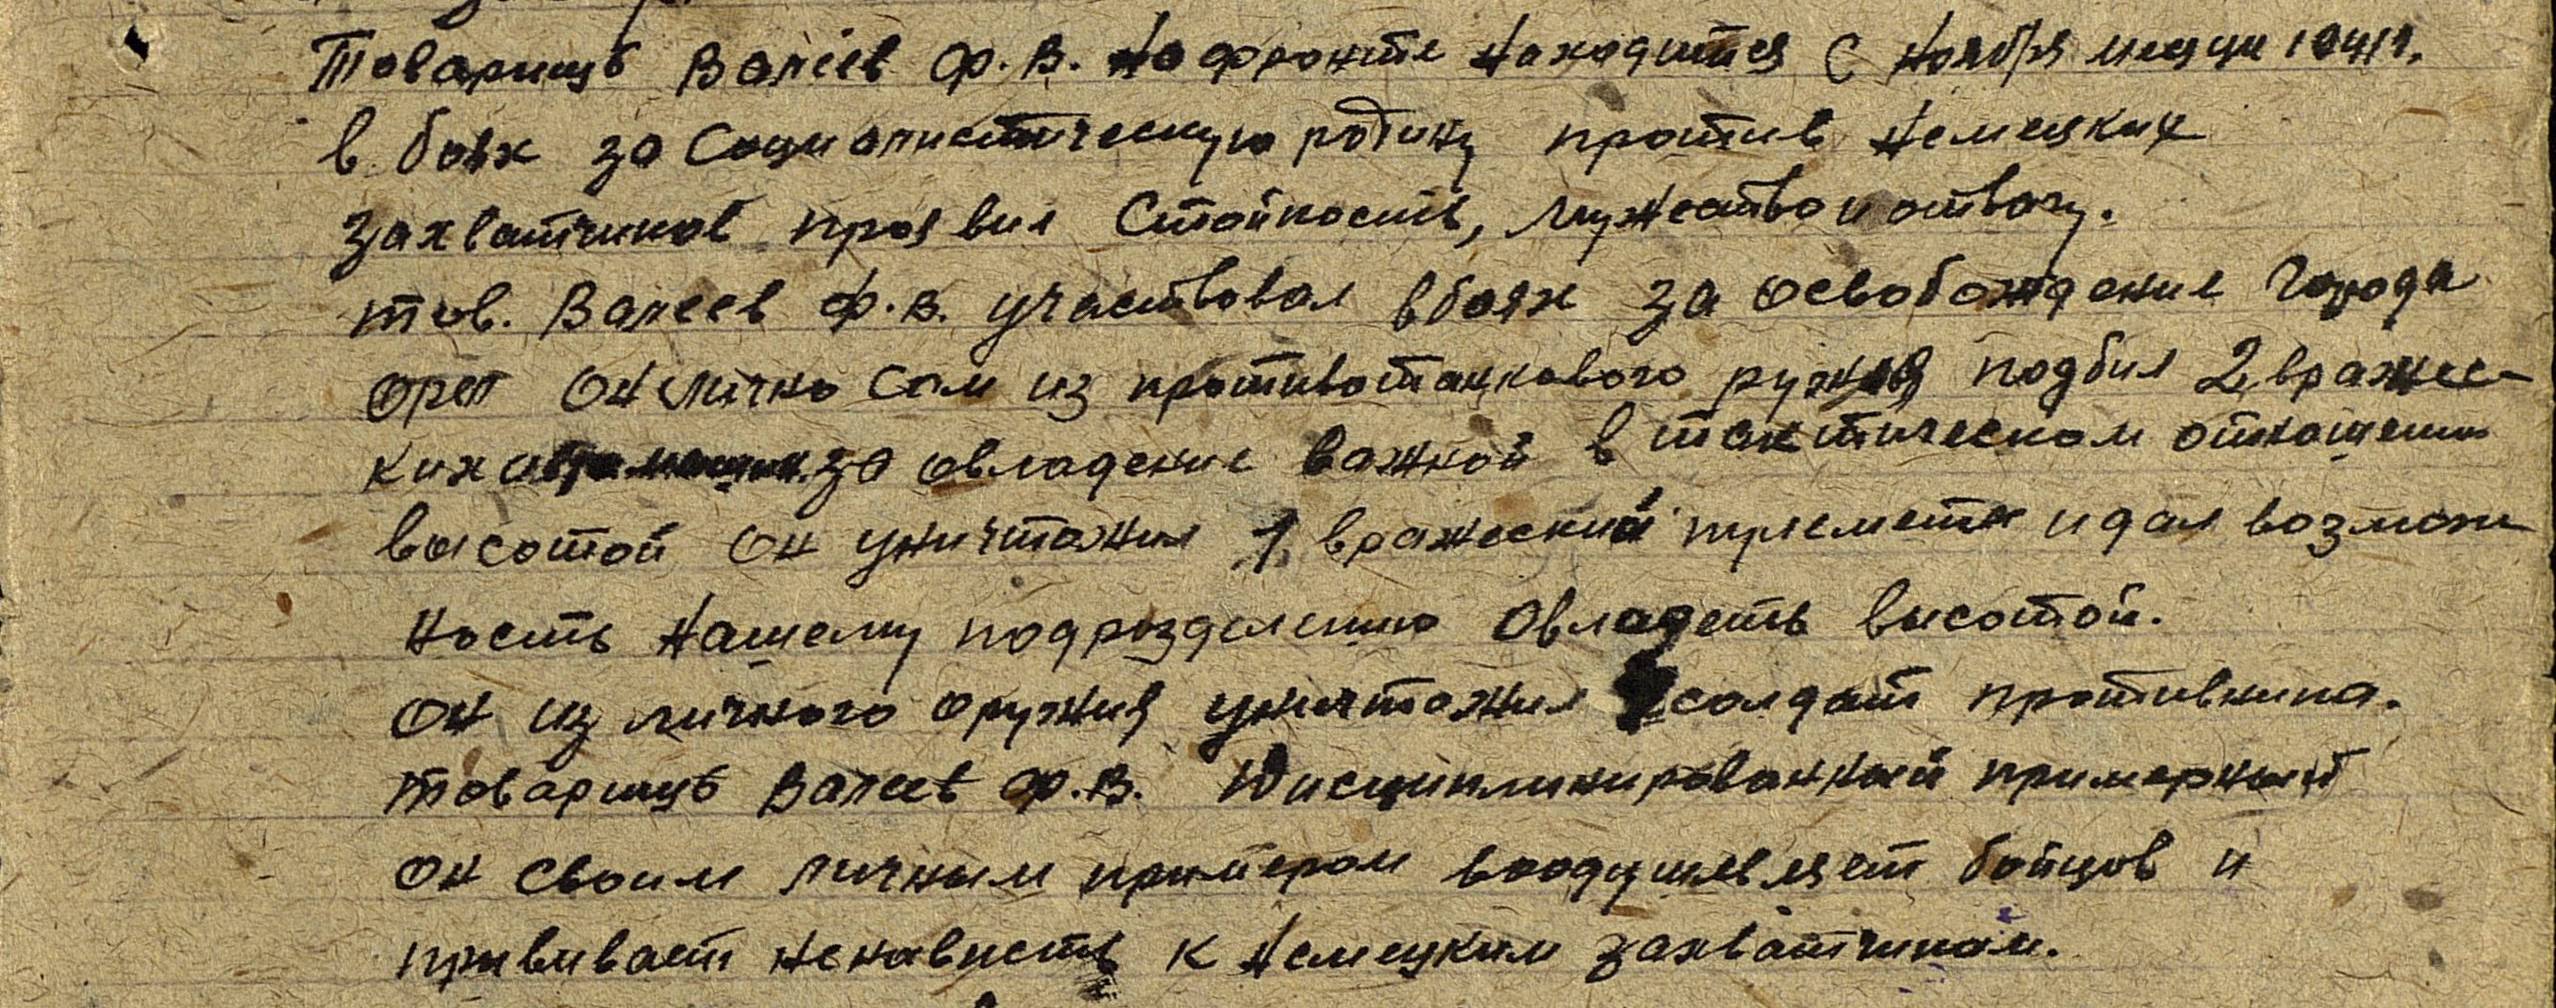 Товарищъ Валеев Ф.В. на фронте находится с ноября месяца 1941г.
в боях за социалистическую родину против немецких
захватчиков проявил стойкость, мужество и отвагу.
тов. Валеев Ф.В. участвовал в боях за освобождение города
орел он лично сам из противотанкового ружья подбил 2 вражес-
ких за овладение важной в тактическом отношении
высотой он уничтожил 1 вражеский пулемет и дал возмож
ность нашему подразделению овладеть высотой.
он из личного оружия уничтожил солдат противника.
товарищъ Валеев Ф.В. дисциплинированный примерный
он своим личным примером воодушевляет бойцов и
прививает ненависть к немецким захватчикам.